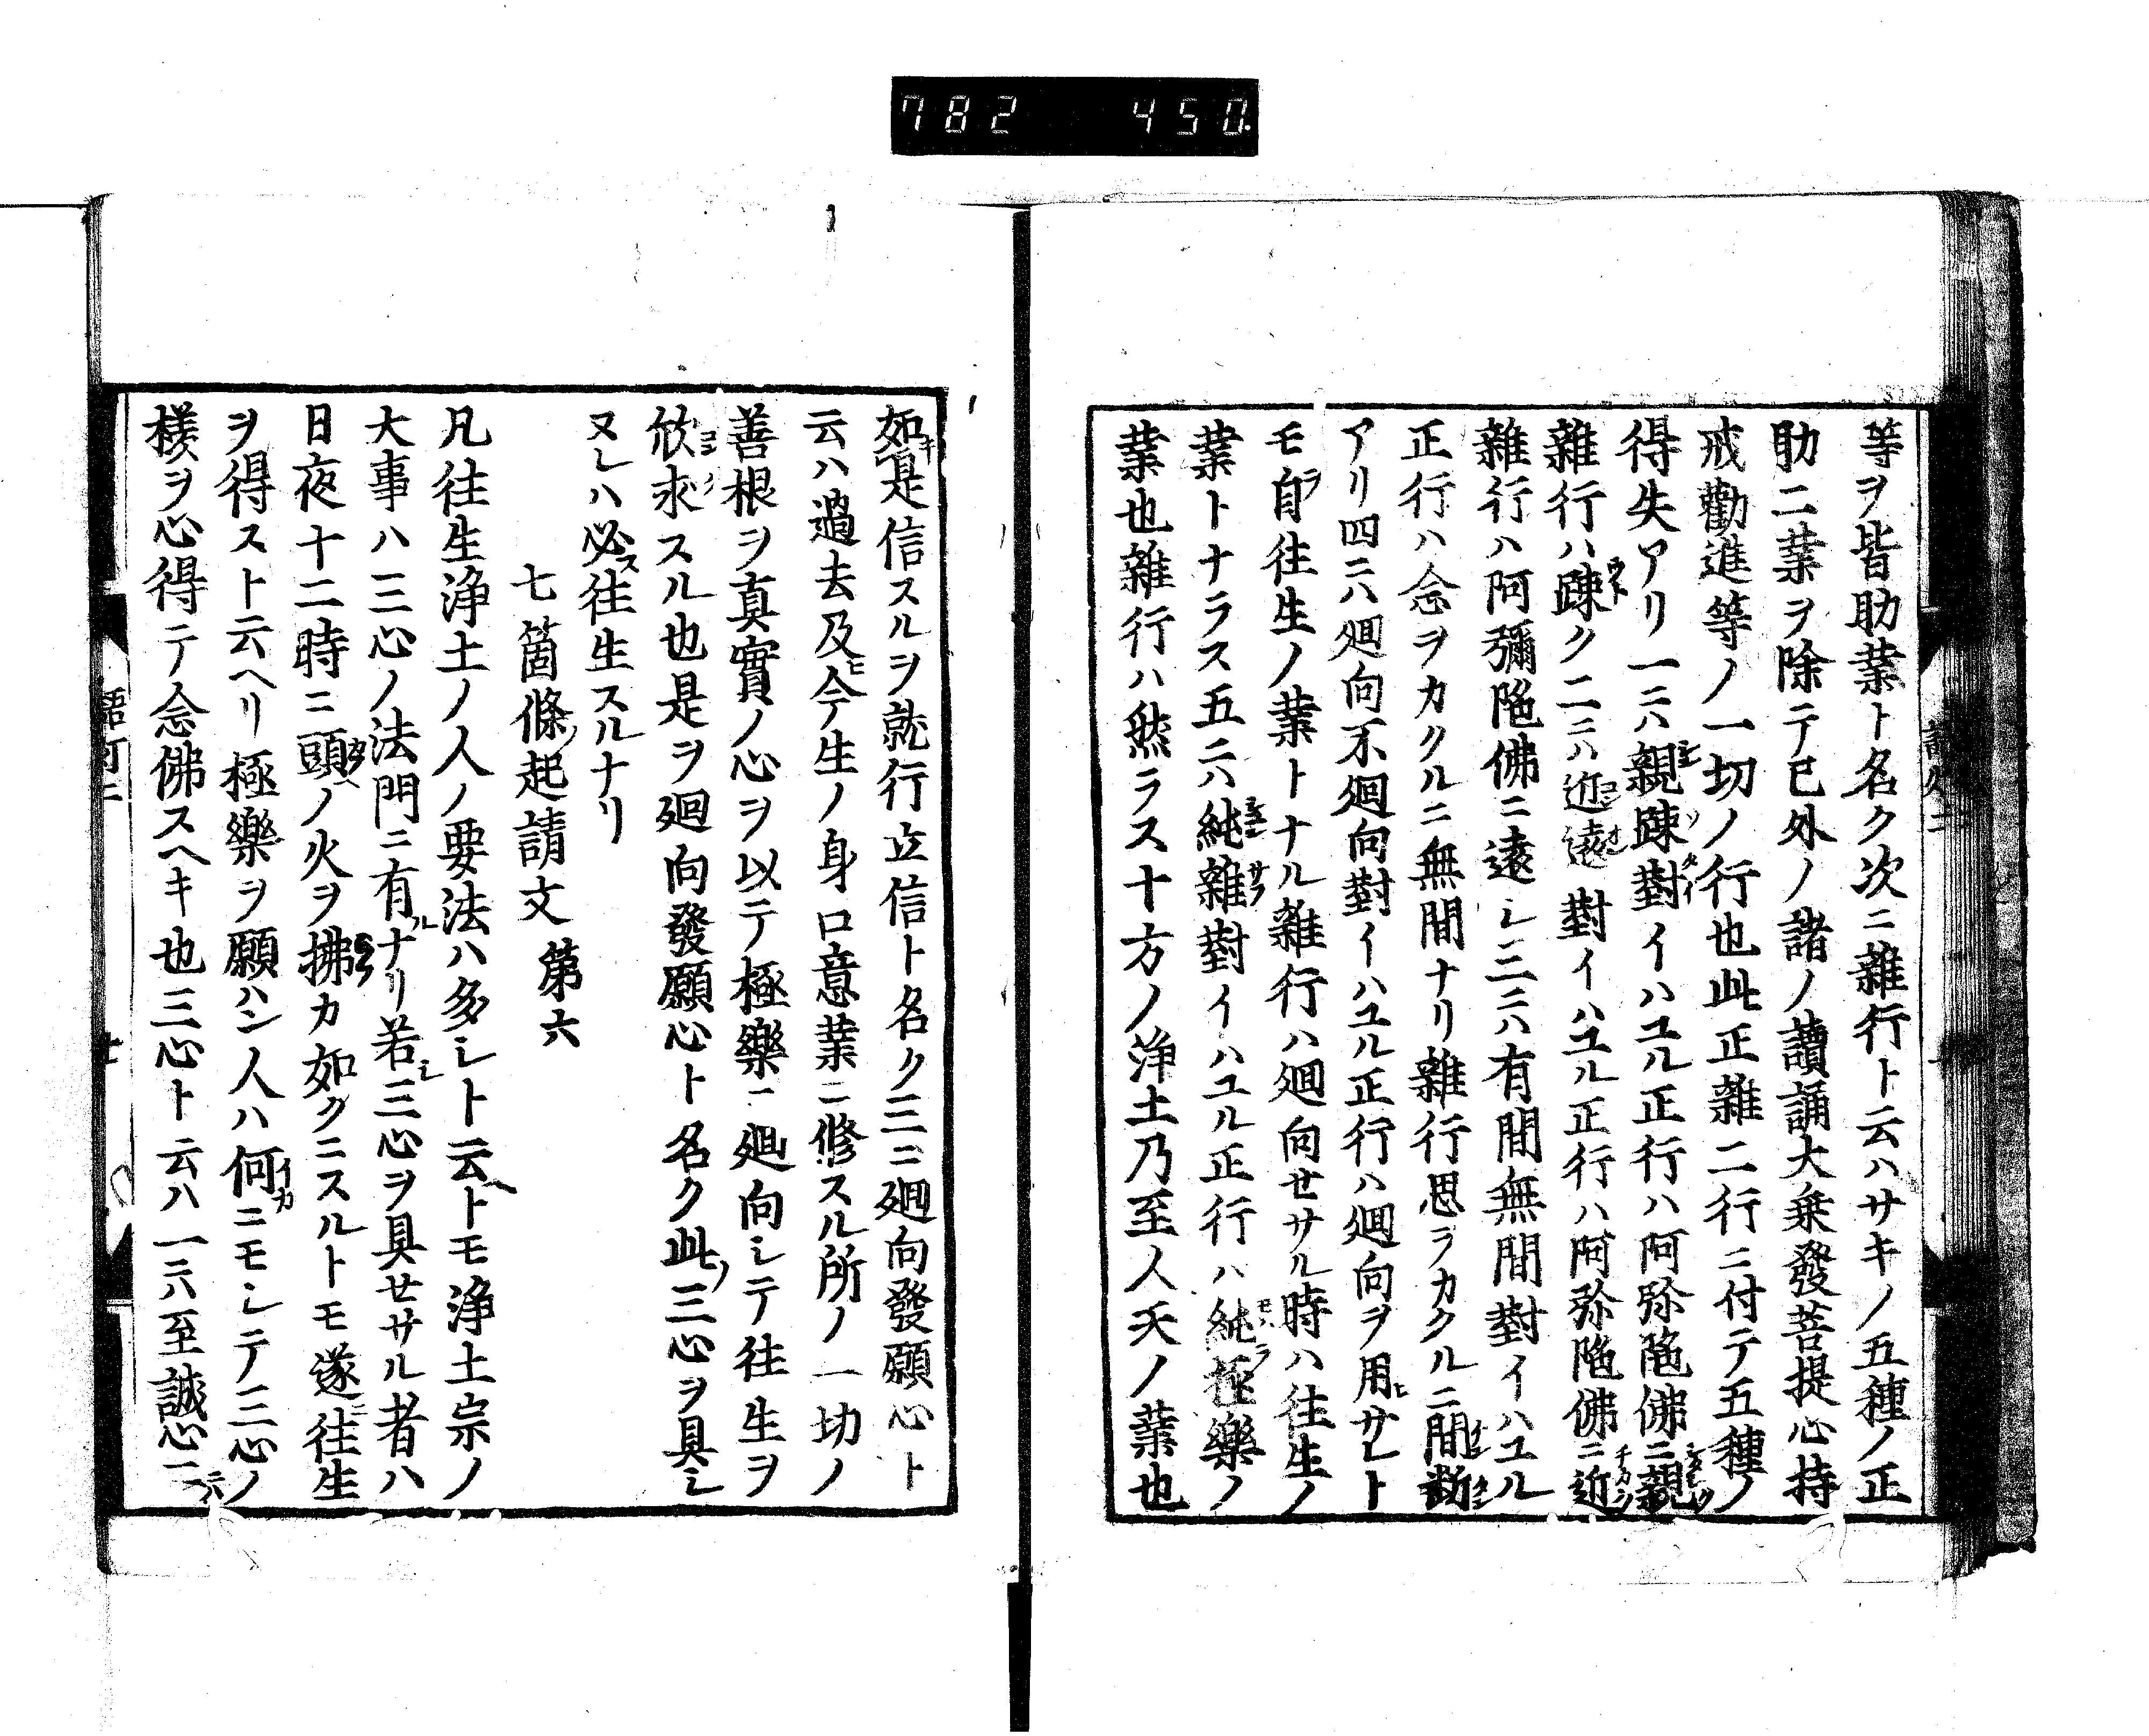 782 450.
等ヲ皆助業ト名ク次ニ雜行ト云ハサキノ五種ノ正
助二業ヲ除テ已外ノ諸ノ讀誦大乗發菩提心持
戒勸進等ノ一切ノ行也此正雜二行ニ付テ五種ノ
得失アリ一ニハ親踈對イハユル正行ハ阿弥陁佛ニ親
雜行ハ踈ク二ニハ近遠對イハユル正行ハ阿弥陁佛ニ近
雜行ハ阿彌陁佛ニ遠シ三ニハ有間無間對イハユル
正行ハ念ヲカクルニ無間ナリ雜行思ヲカクルニ間斷
アリ四ニハ廻向不廻向對イハユル正行ハ廻向ヲ用サレト
モ自往生ノ業トナル雜行ハ廻向セサル時ハ往生ノ
業トナラス五ニハ純雜對イハユル正行ハ純極樂ノ
業也雜行ハ然ラス十方ノ浄土乃至人天ノ業也
如是信スルヲ就行立信ト名ク三ニ廻向發願心ト
云ハ過去及今生ノ身口意業ニ修スル所ノ一切ノ
善根ヲ真實ノ心ヲ以テ極樂ニ廻向シテ往生ヲ
欣求スル也是ヲ廻向發願心ト名ク此三心ヲ具シ
ヌレハ必往生スルナリ
七箇條起請文第六
凡往生浄土ノ人ノ要法ハ多シト云トモ浄土宗ノ
大事ハ三心ノ法門ニ有ナリ若三心ヲ具セサル者ハ
日夜十二時ニ頭ノ火ヲ拂カ如クニスルトモ遂往生
ヲ得スト云ヘリ極樂ヲ願ハン人ハ何ニモシテ三心ノ
様ヲ心得テ念佛スヘキ也三心ト云ハ一ニハ至誠心二ニハ